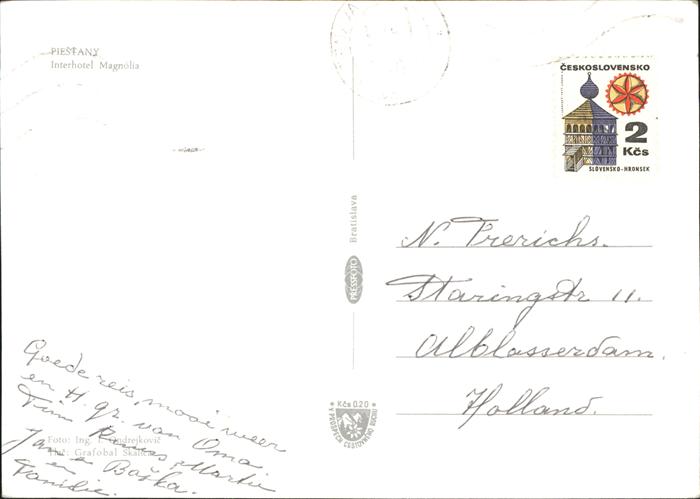 PIEŠŤANY
Interhotel Magnólia
ČESKOSLOVENSKO
2
Kčs
SLOVENSKO-HRONSEK
Bratislava
PRESSFOTO
N. Frerichs.
Staringstr 11.
Alblasserdam.
Holland.
Kčs 0.20
V PROSPĚCH CESTOVNÉHO RUCHU
Goede reis, mooi weer
en H. gr. van Oma.
Tim
Jana Baška.
en
Familie.
Foto: Ing. Ondrejkovič
Tlač: Grafobal Skalica